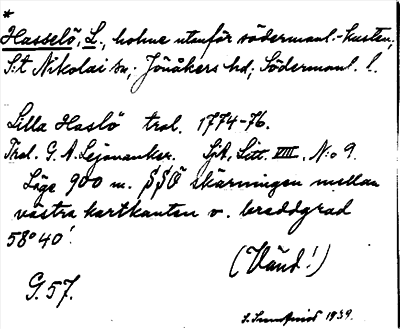 *
Hasselö, L., holme utanför södermanl.-kusten;
S:t Nikolai sn; Jönåkers hd, Södermanl. l.
Lilla Haslö trol. 1774-76.
Trol. G. A. Lejonanker. SjA, Litt. VIII, N:o 9.
Läge 900 m. SSÖ skärningen mellan
västra kartkanten o. breddgrad
58°40'.
(Vänd!)
G. 57.
1939.